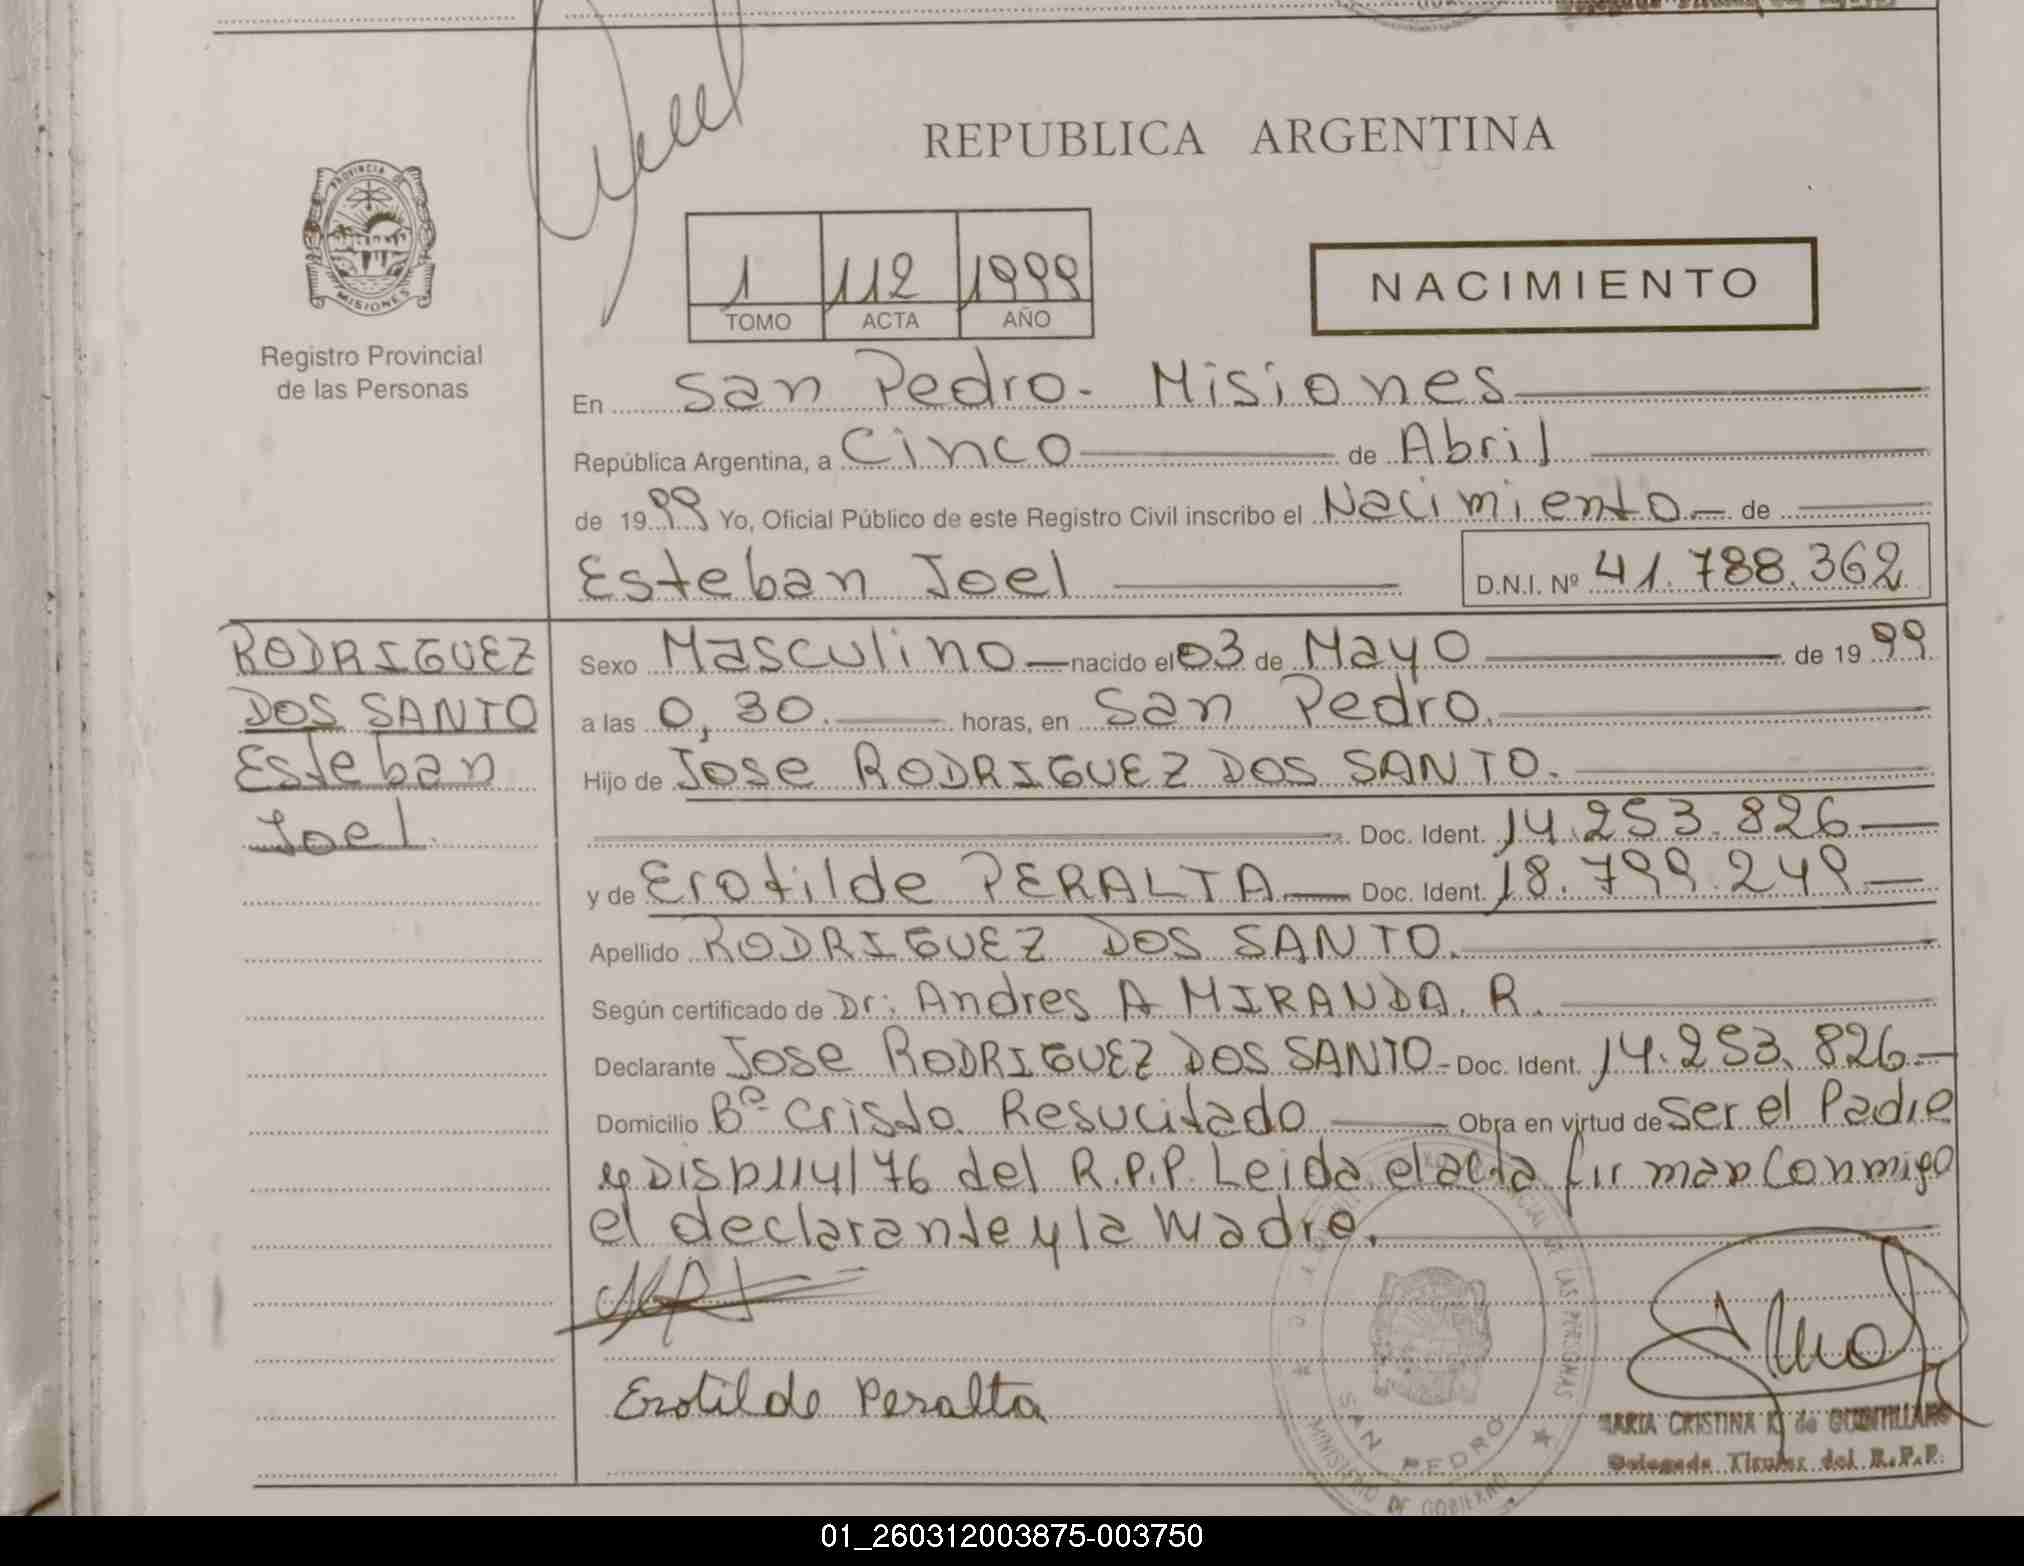 REPUBLICA ARGENTINA
PROVINCIA DE
MISIONES
Registro Provincial
de las Personas
1 112 1999
TOMO ACTA AÑO
NACIMIENTO
En San Pedro - Misiones
República Argentina, a Cinco de Abril
de 1999 Yo, Oficial Público de este Registro Civil inscribo el Nacimiento de
Esteban Joel D.N.I. Nº 41.788.362
RODRIGUEZ
DOS SANTO
Esteban
Joel.
Sexo Masculino nacido el 03 de Mayo de 1999
a las 0,30. horas, en San Pedro.
Hijo de Jose RODRIGUEZ DOS SANTO.
Doc. Ident. 14.253.826
y de Erotilde PERALTA Doc. Ident. 18.799.249
Apellido RODRIGUEZ DOS SANTO.
Según certificado de Dr: Andres A MIRANDA. R.
Declarante Jose RODRIGUEZ DOS SANTO - Doc. Ident. 14.253.826
Domicilio Bº Cristo Resucitado Obra en virtud de Ser el Padre
y Disp 114/76 del R.P.P. Leida el acta firman Conmigo
el declarante y la Madre.
Erotilde Peralta
SAN PEDRO
MINISTERIO DE GOBIERNO
DE LAS PERSONAS
MARIA CRISTINA K. de
Delegada Titular del R.P.P.
01_260312003875-003750